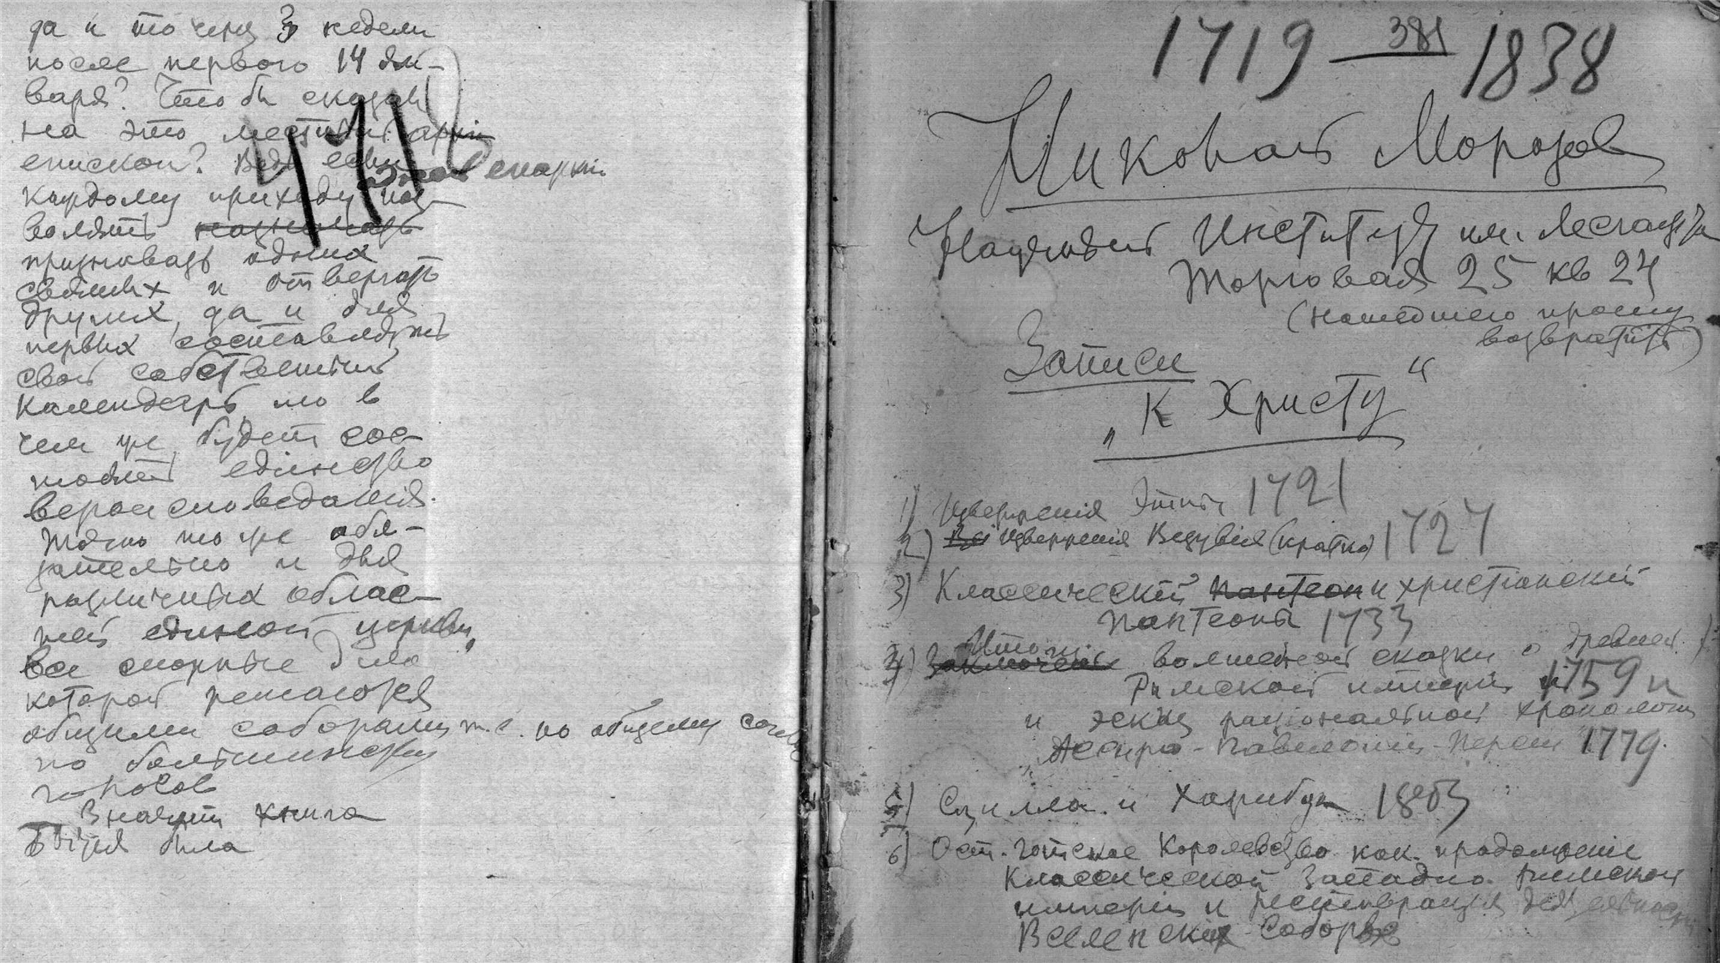 да и то через 3 недели
после первого 14 ян-
варя? Что бы сказал
на это местный архи
епископ? Ведь если
епархии
каждому приходу поз-
волять назначать
признавать одних
святых и отвергать
других, да и для
первых составлять
свой собственный
календарь, то в
чем же будет сос-
тоять единство
вероисповедания.
Точно то же обя-
зательно и для
различных облас-
тей единой церкви,
все спорные дела
которой решаются
общими соборами т.е. по общему
по большинству
голосов
Значит книга
Бытия была
1718
1719 — 381 1838
Николай Морозов
Научный Институт им. Лесгафта
Торговая 25 кв 24
(нашедшего прошу
возвратить)
Записи
„К Христу“
1) Извержения Этны 1721
2) Все извержения Везувия (кратко) 1727
3) Классический пантеон и христианский
пантеоны 1733
Итоги
4) Заключение волшебной сказки о древней
Римской империи 1759 и
и эскиз рациональной хронологии
„Ассиро-Вавилонии-Персии“ 1779.
5) Сцилла и Харибда 1803
6) Ост.-готское Королевство как продолжение
Классической Западно Римской
империи и
Вселенских Соборов